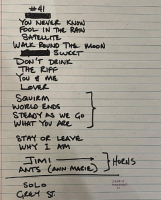 #41
YOU NEVER KNOW
FOOL IN THE RAIN
SATELLITE
WALK ROUND THE MOON
SWEET
DON'T DRINK
THE RIFF
YOU & ME
LOVER
SQUIRM
WORLD ENDS
STEADY AS WE GO
WHAT YOU ARE
STAY OR LEAVE
WHY I AM
JIMI → HORNS
ANTS (ANN MARIE)
SOLO
GREY ST.